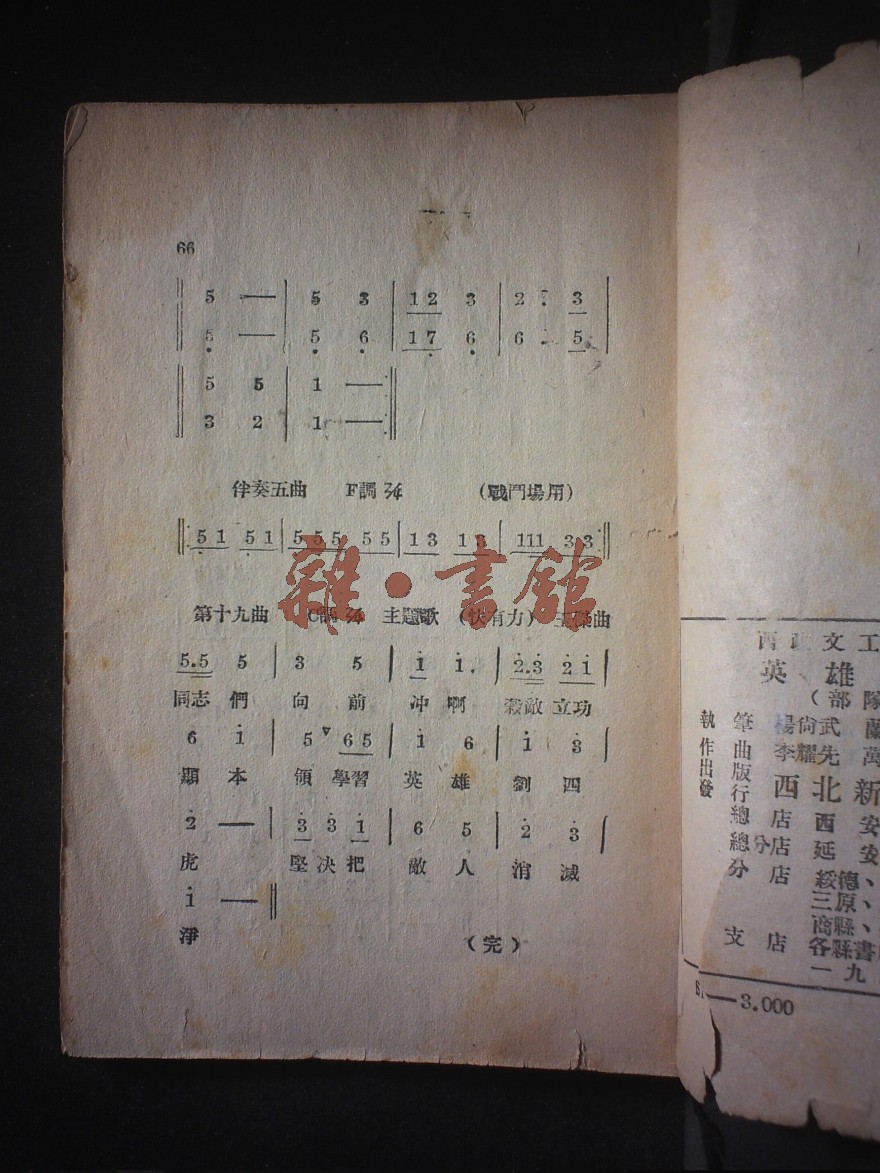 66
5 — | 5 3 | 1 2 3 | 2 . 3 |
5 — | 5 6 | 1 7 6 | 6 . 5 |
5 5 | 1 —
3 2 | 1 —
伴奏五曲 F調 2/4 (戰鬥場用)
5 1 5 1 | 5 5 5 5 5 | 1 3 1 3 | 111 3 3
雜·書館
第十九曲 C調 2/4 主題歌 (快有力) 曲
5.5 5 | 3 5 | 1 1. | 2.3 2 1
同志們 向 前 冲 啊 殺敵 立功
6 1 | 5 6 5 | 1 6 | 1 3 |
顯 本 領 學習 英 雄 劉 四
2 — | 3 3 1 | 6 5 | 2 3
虎 堅決把 敵 人 消 滅
1 —
淨
(完)
文工
英 雄
(部隊
執筆 楊尙武 蘭
作曲 李耀先 萬
出版 西北新
發行
總店 西安
總分店 延安
分店 綏德、
三原、
商縣、
支店 各縣書
一九
—3.000